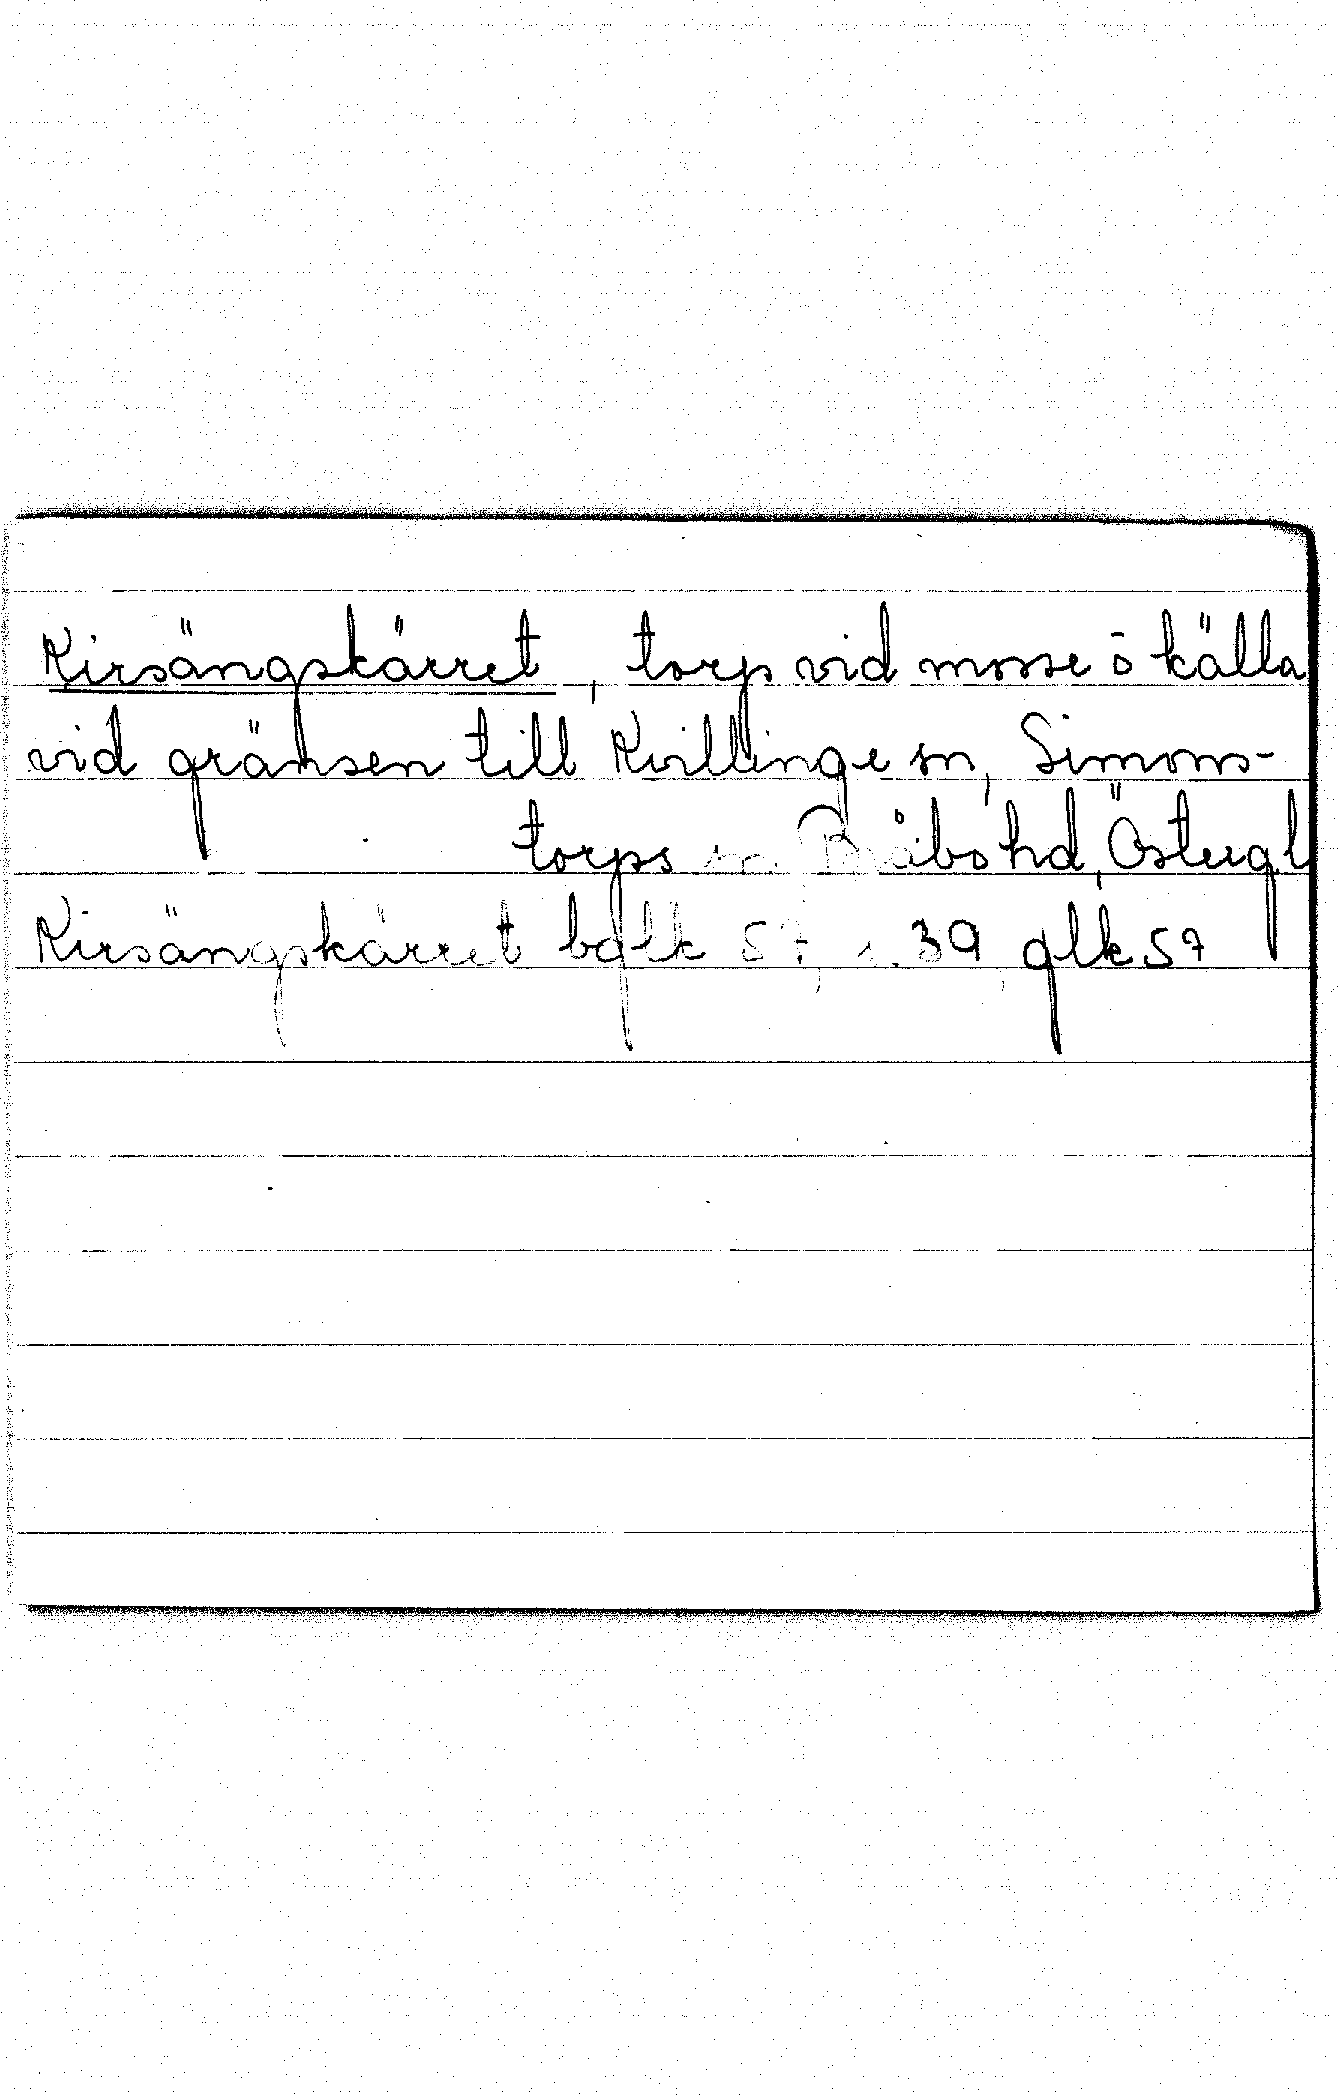 Kirsängskärret, torp vid mosse ō källa
vid gränsen till Kvillinge sn, Simons-
torps sn. Bråbo hd, Östergl
Kirsängskärret bglk 57, s. 39, glk 57